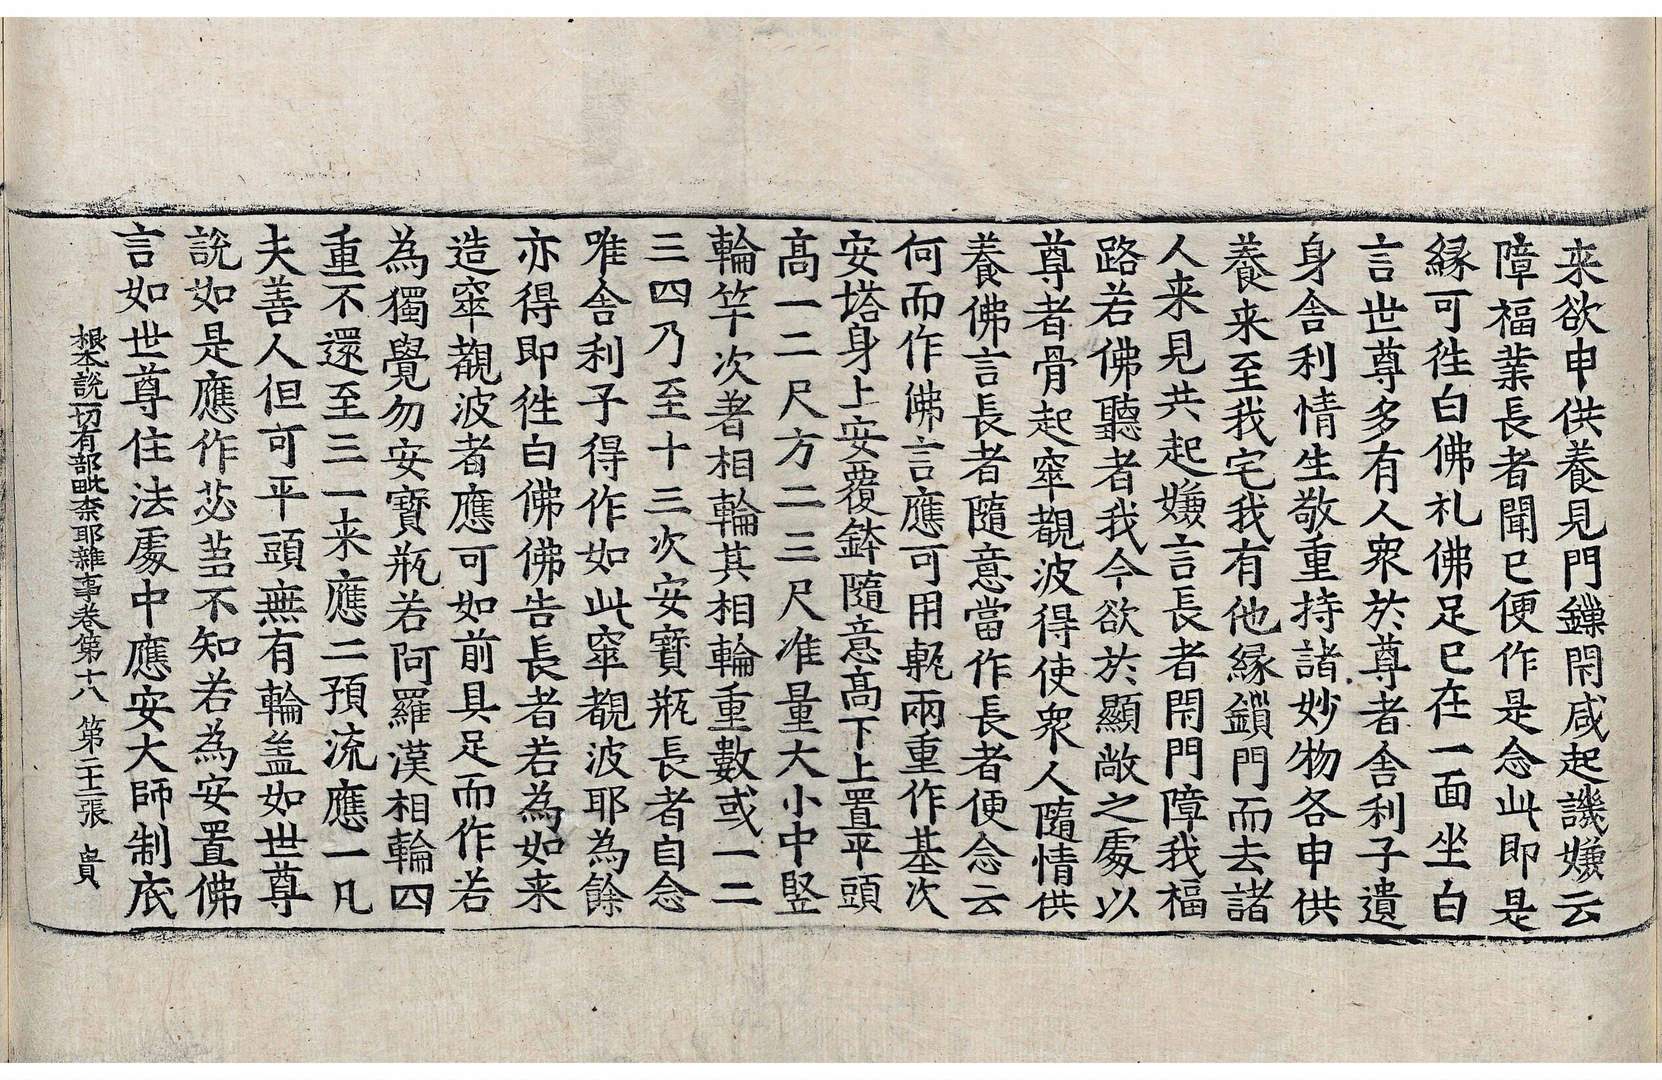 来欲申供養見門鏁閇咸起譏嫌云
障福業長者聞已便作是念此即是
縁可徃白佛礼佛足已在一面坐白
言世尊多有人衆於尊者舎利子遺
身舎利情生敬重持諸妙物各申供
養来至我宅我有他縁鏁門而去諸
人来見共起嫌言長者閇門障我福
路若佛聽者我今欲於顯敞之處以
尊者骨起窣覩波得使衆人隨情供
養佛言長者隨意當作長者便念云
何而作佛言應可用甎兩重作基次
安塔身上安覆鉢隨意高下上置平頭
高一二尺方二三尺准量大小中竪
輪竿次著相輪其相輪重數或一二
三四乃至十三次安寳瓶長者自念
唯舎利子得作如此窣覩波耶為餘
亦得即徃白佛佛告長者若為如来
造窣覩波者應可如前具足而作若
為獨覺勿安寳瓶若阿羅漢相輪四
重不還至三一来應二預流應一凡
夫善人但可平頭無有輪盖如世尊
說如是應作苾蒭不知若為安置佛
言如世尊住法處中應安大師制底
根本說一切有部毗奈耶雜事卷第十八 第二十三張 貴